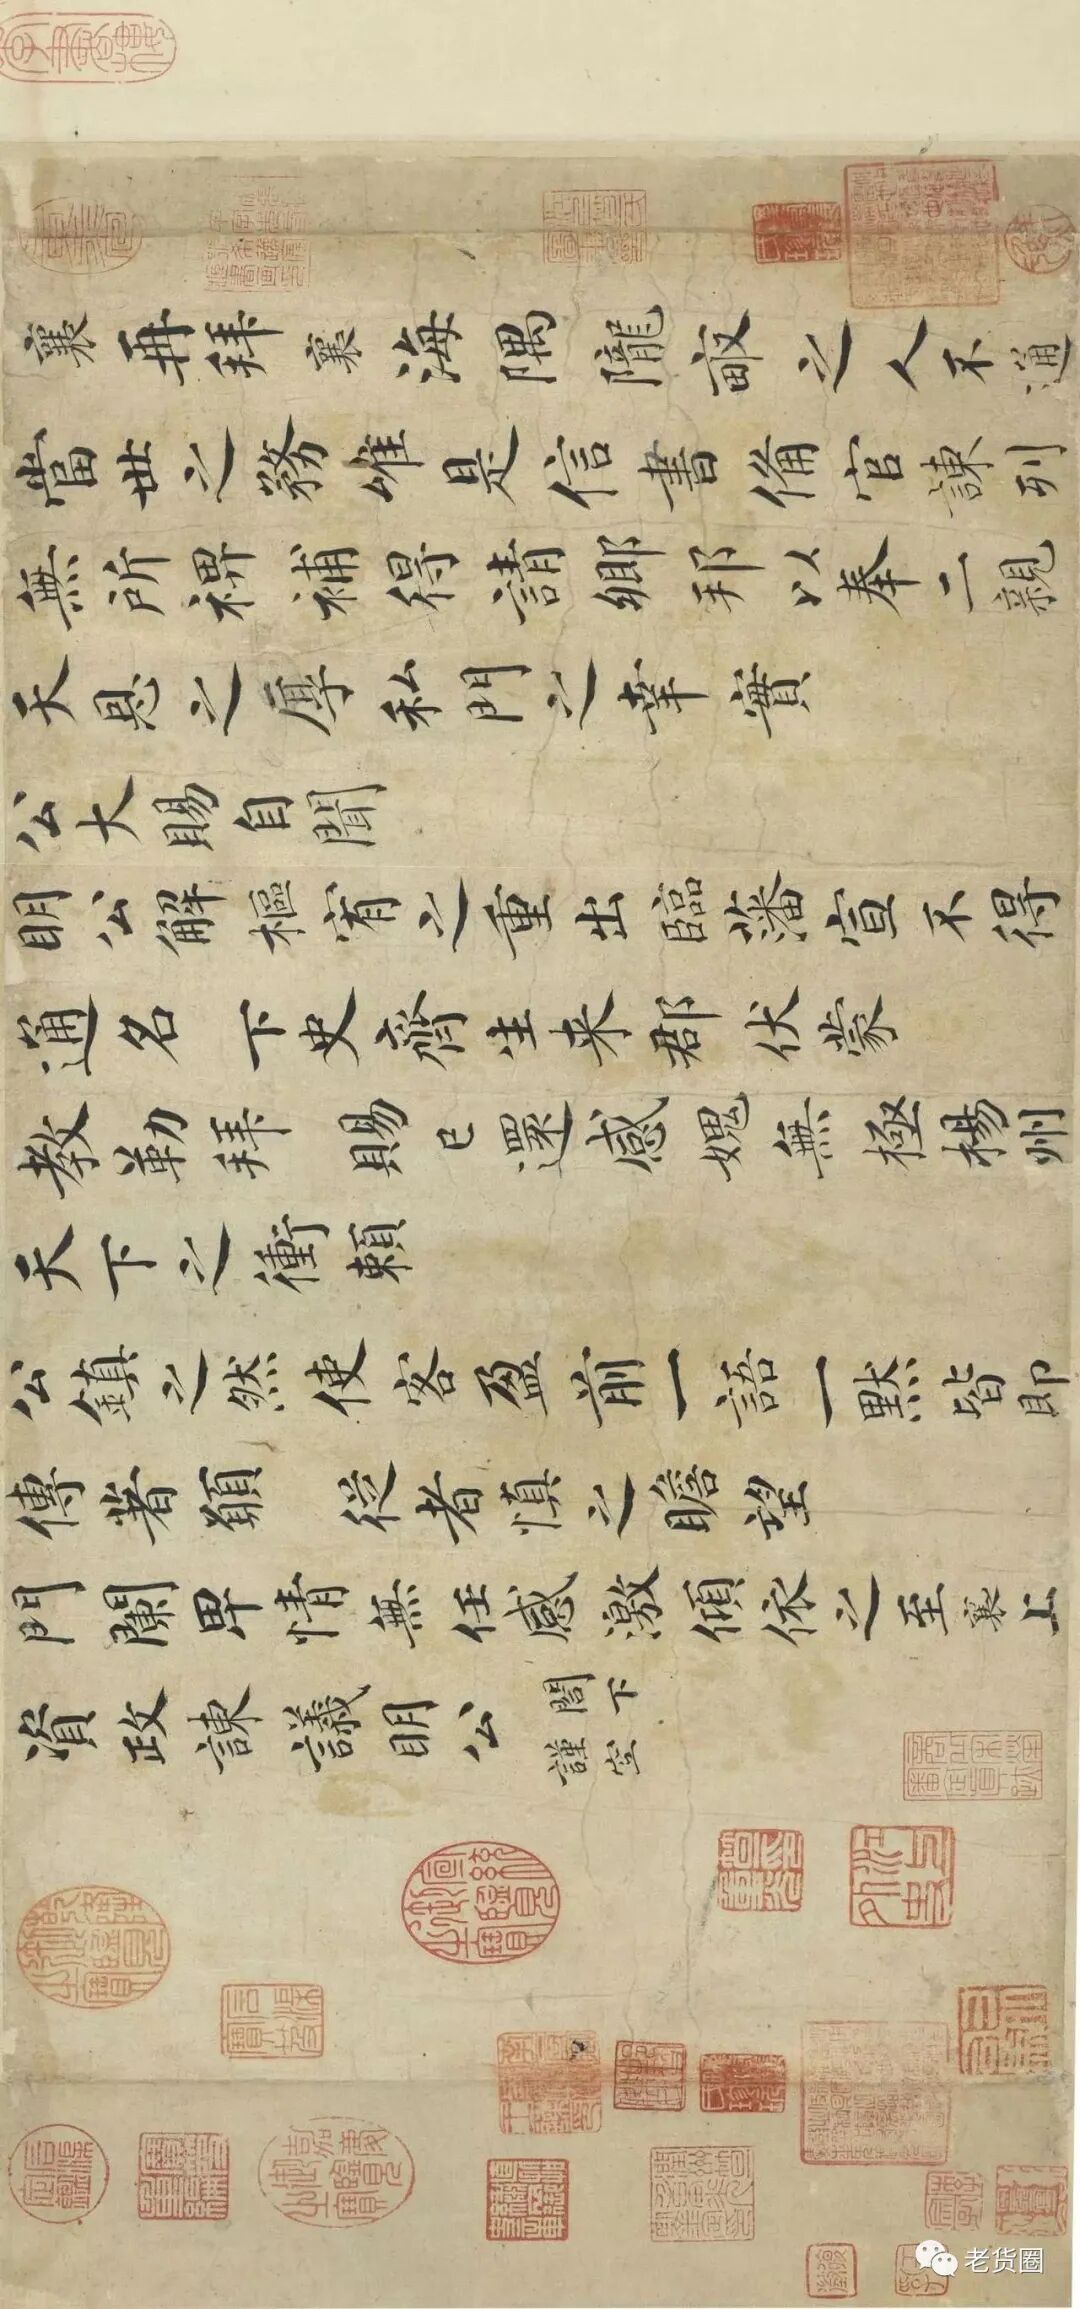 襄再拜襄海隅隴畝之人不通
當世之務唯是信書備官諫列
無所裨補得請鄉邦以奉二親
天恩之厚私門之幸實
公大賜自聞
明公解樞宥之重出臨藩宣不得
通名下史齊生来郡伏蒙
教勒拜賜已還感媿無極楊州
天下之衝賴
公鎮之然使客盈前一語一默皆即
傳著願從者慎之瞻望
門闌卑情無任感激傾依之至襄上
資政諫議明公閤下
謹空
老货圈